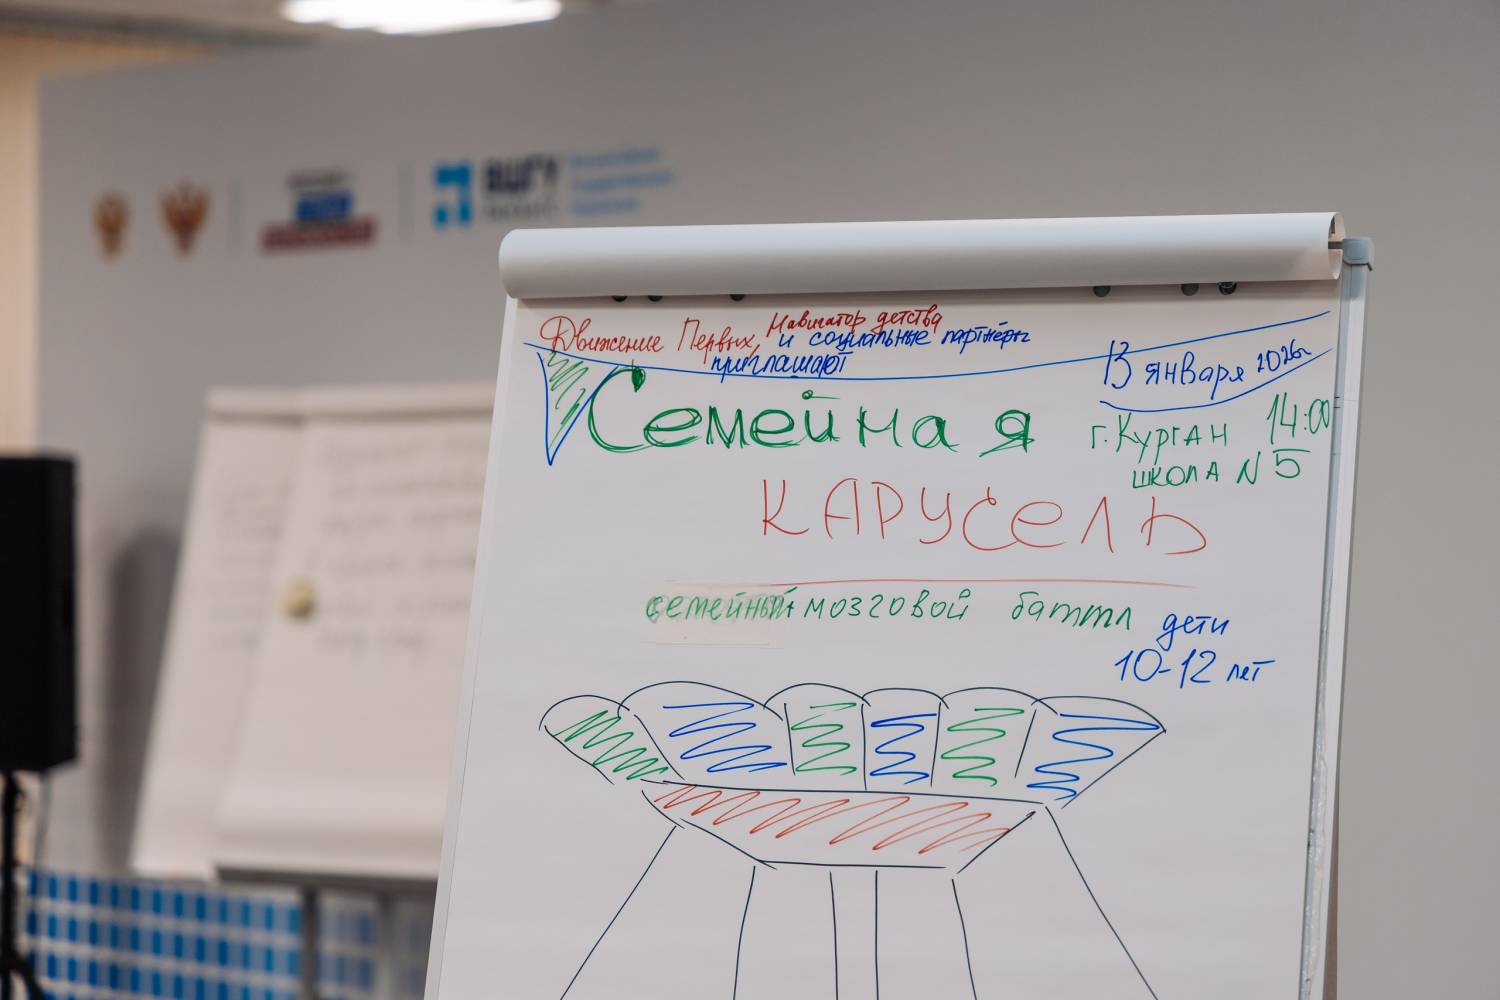 ВШГУ
Движение Первых, Навигатор детства
и социальные партнёры
приглашают
13 января 2026г
Семейная
г. Курган 14:00
школа N 5
КАРУСЕЛЬ
семейный мозговой баттл
дети
10-12 лет